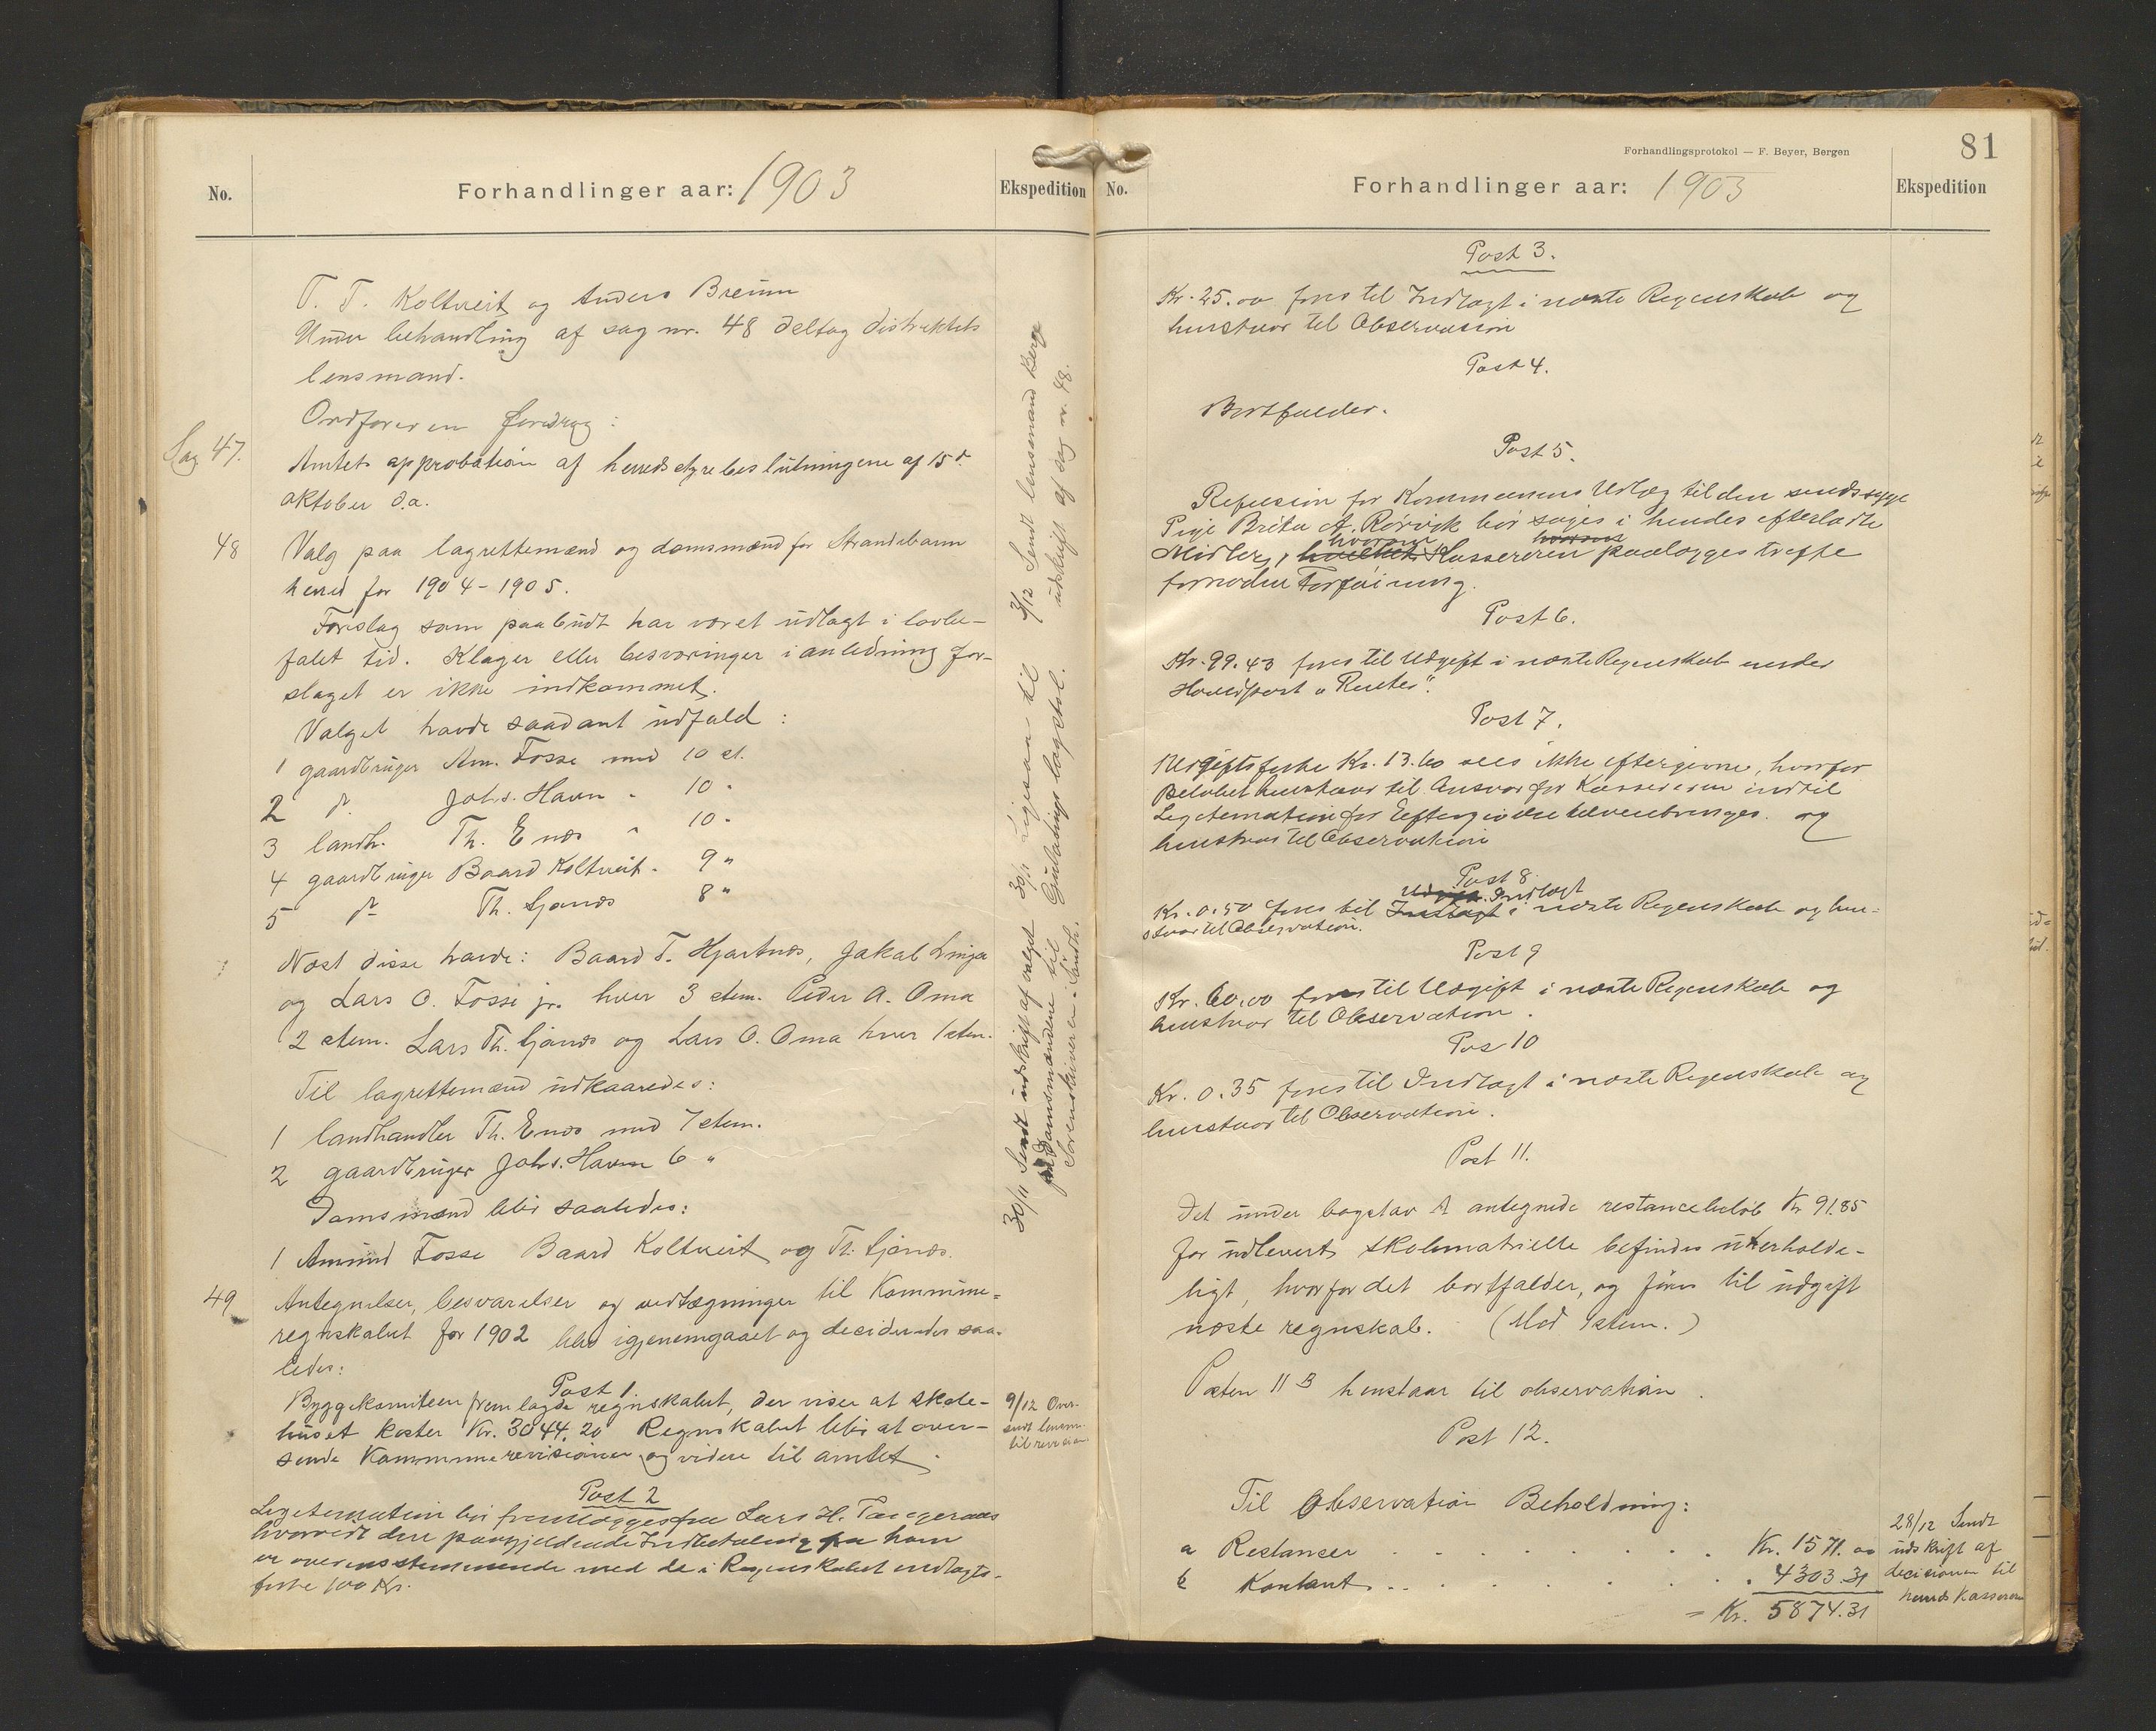 No.
Forhandlinger aar: 1903
Ekspedition
T. T. Koltveit og Anders Breiun
Under behandling af sag nr. 48 deltog distriktets
lensmand.
Ordføreren foredrog:
Sag 47.
Amtets approbation af herredsstyrebeslutningene af 15de
oktober d.a.
48
Valg paa lagrettemænd og domsmænd for Strandebarm
herred for 1904-1905.
Forslag som paabudt har været udlagt i lovbe-
falet tid. Klager eller besværinger i anledning for-
slaget er ikke indkommet.
Valget havde saadant udfald:
1 gaardbruger Am. Fosse med 10 st.
2 do Johs. Havn " 10 "
3 landh. Th. Enæs " 10 "
4 gaardbruger Baard Koltveit " 9 "
5 do Th. Gjønæs 8 "
Næst disse havde: Baard T. Hjartnæs, Jakob Linga
og Lars O. Fosse jr. hver 3 stem. Peder A. Oma
2 stem. Lars Th. Gjønæs og Lars O. Oma hver 1 stem.
Til lagrettemænd udkaaredes:
1 landhandler Th. Enæs med 7 stem.
2 gaardbruger Johs. Havn 6 "
Domsmænd blir saaledes:
1 Amund Fosse Baard Koltveit og Th. Gjønæs.
49
Antegnelser, besvarelser og vedtægninger til Kommune-
regnskabet for 1902 blev igjennemgaaet og decideredes saa-
ledes:
Post 1.
Byggekomiteen fremlagde regnskabet, der viser at skole-
huset koster Kr. 3044.20 Regnskabet blir at over-
sende Kommunerevisionen og videre til amtet.
Post 2
Legitemation bør fremlægges fra Lars H. Tangeraas
hvorvidt den paagjeldende Indbetaling fra ham
er overensstemmende med de i Regnskabet indtagts-
førte 100 Kr.
30/11 Sendt udskrift af valget 30/11 Ligesaa til 3/12 Sendt lensmand Berge
paa Domsmændene til Gulathings lagstol. udskrift af sag nr. 48.
Sorenskriveren i Søndh.
9/12 Over-
sendt lensm.
til revision
Forhandlingsprotokol — F. Beyer, Bergen
81
No.
Forhandlinger aar: 1903
Ekspedition
Post 3.
Kr. 25.00 føres til Indtægt i næste Regnskab og
henstaar til Observasion
Post 4.
Bortfalder.
Post 5.
Refusion for Kommunens Udlæg til den sindssyge
Pige Brita A. Rørvik bør søges i hendes efterladte
Midler, hvorom Kassereren paalægges træffe
fornøden Forføining.
Post 6.
Kr. 99.43 føres til Udgift i næste Regnskab under
Hovedpost "Renter".
Post 7.
Udgiftsførte Kr. 13.60 sees ikke eftergivne, hvorfor
Beløbet henstaar til Ansvar for Kassereren indtil
Legitemation for Eftergivelse tilveiebringes. og
henstaar til Observation
Post 8.
Kr. 0.50 føres til Indtægt i næste Regnskab og hen-
staar til Observation.
Post 9
Kr. 60.00 føres til Udgift i næste Regnskab og
henstaar til Observation.
Pos 10
Kr. 0.35 føres til Indtægt i næste Regnskab og
henstaar til Observation.
Post 11.
Det under bogstav A antegnede restancebeløb Kr 91.85
for udlevert skolematrielle befindes uerholde-
ligt, hvorfor det bortfalder, og føres til udgift
næste regnskab. (Mod 1 stem.)
Posten 11 B henstaar til observation.
Post 12.
Til Observation Beholdning:
a Restanser . . . . . Kr. 1571.00
b Kontant . . . . . . 4303.31
= Kr. 5874.31
28/12 Sendt
udskrift af
decisionen til
herredskassereren